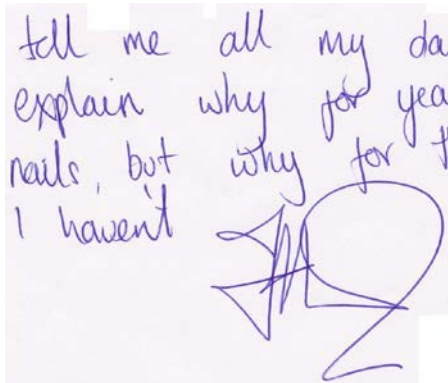 tell me all my da
explain why for yea
nails, but why for t
I haven't